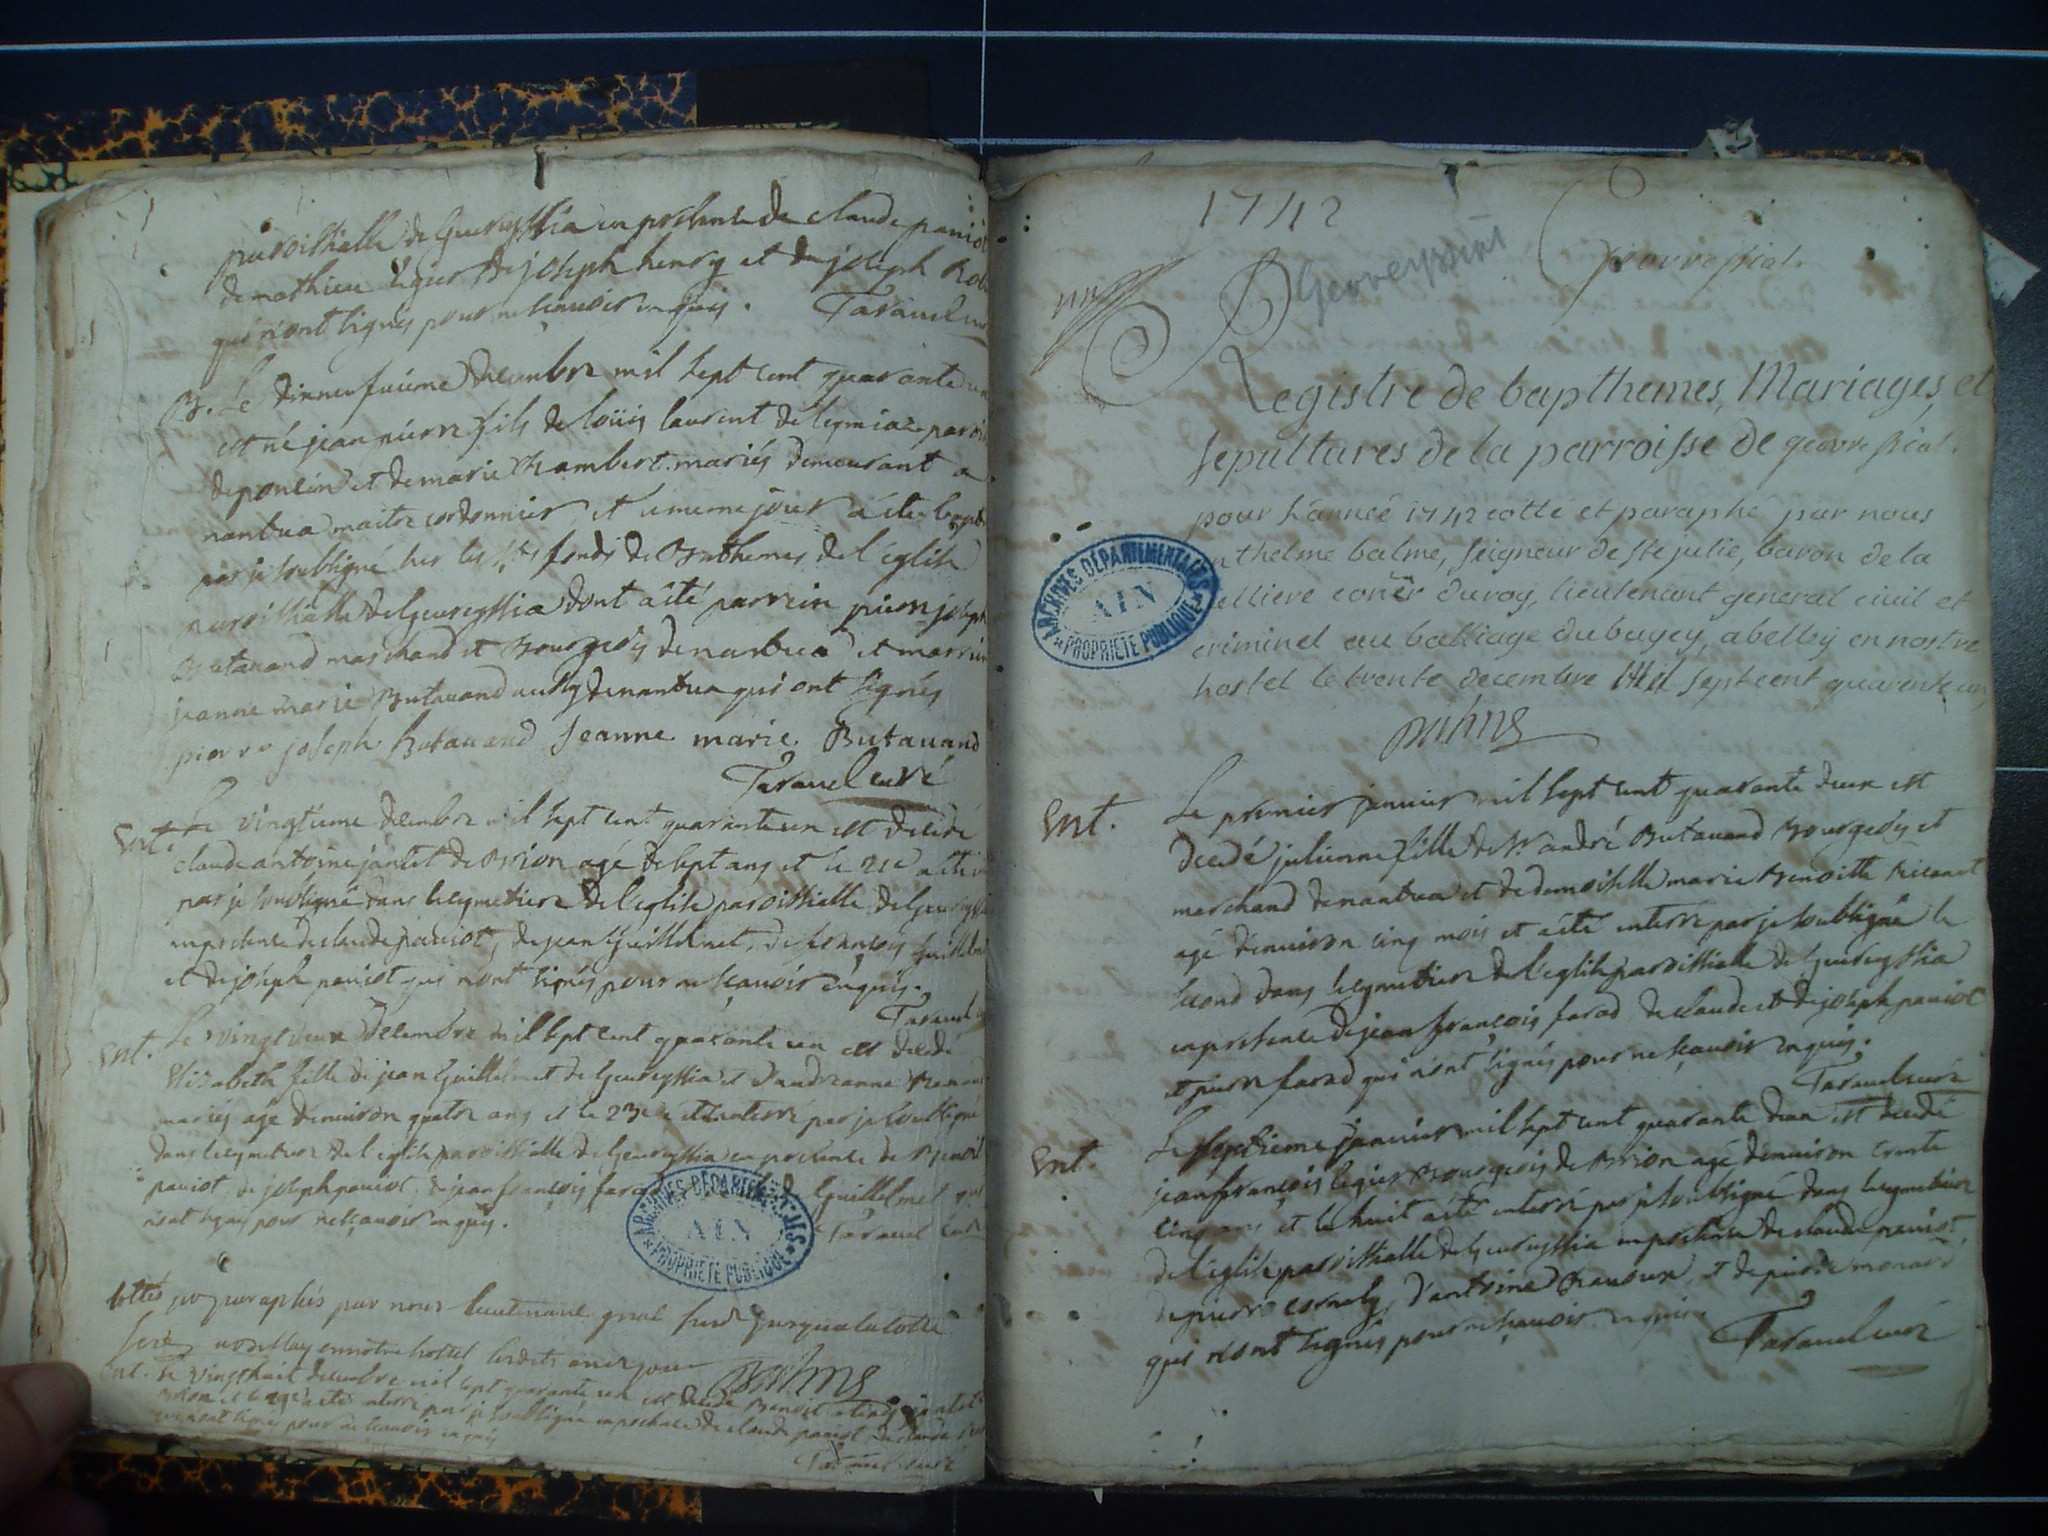 paroissialle de Geureyssia en presence de claude paniot
de mathieu legier de joseph henry et de joseph Rob
qui n'ont signés pour ne sçauoir enquis. Tarauel
B. Le dixneufuieme decembre mil sept cent quarante un
est né jean pierre fils de loüis laurent de leymiac parois
de poncin et de marie chambert mariés demeurant a
nantua maitre cordonnier et le meme jour a été bapt
par je soubsigné sur les sts fonds de Bapthemes de l'eglise
paroissialle de Geureyssia dont a été parrein pierre joseph
Butauand marchand et Bourgeois de nantua et marrein
jeanne marie Butauand aussy de nantua qui ont signés
pierre joseph butauand Jeanne marie Butauand
Tarauel curé
Ent. Le vingtieme decembre mil sept cent quarante un est decedé
claude antoine jantet de Brion agé de sept ans et le 21e a été
par je soubsigné dans le cymetiere de l'eglise paroissialle de Geureyssia
en presence de claude paniot, de jean Guillelmet, de françois Guillelmet
et de joseph paniot qui n'ont signés pour ne sçauoir enquis.
Tarauel
Ent. Le vingt deux decembre mil sept cent quarante un est decedé
Elizabeth fille de jean Guillelmet de Geureyssia et d'andreanne
mariés agé d'enuiron quatre ans et le 23e a été enterré par je soubsigné
dans le cymetiere de l'eglise paroissialle de Geureyssia en presence de Benoit
paniot, de joseph paniot, de jean françois farad Guillelmet qui
n'ont signés pour ne sçauoir enquis. Tarauel curé
Cottés et paraphés par nous lieutenant gnal susd jusqua la cotte
seize en nôtre hostel lesdits an et jour
Balme
Ent. Le vingt huit decembre mil sept quarante un est decedé Benoit jantet
Brion et le 29e a été enterré par je soubsigné en presence de claude paniot de claude
qui n'ont signés pour ne sçauoir enquis
Tarauel curé
ARCHIVES DÉPARTEMENTALES
AIN
PROPRIÉTÉ PUBLIQUE
1742
Geovreissiat
Geovressiat
Registre de bapthemes, Mariages, et
sepultures de la parroisse de geovressiat.
pour L'année 1742 cotté et paraphé par nous
anthelme balme, seigneur de Ste julie, baron de la
elliere coner du roy, lieutenant general civil et
criminel au balliage du bugey, a belley en nostre
hostel le trente decembre Mil sept cent quarente un,
Balme
ARCHIVES DÉPARTEMENTALES
AIN
PROPRIÉTÉ PUBLIQUE
Ent. Le premier januier mil sept cent quarante deux est
decedé julienne fille de Sr andré Butauand Bourgeois et
marchand de nantua et de demoiselle marie Benoitte
agé d'enuiron cinq mois et a été enterré par je soubsigné le
second dans le cymetiere de l'eglise paroissialle de Geureyssia
en presence de jean françois farad de claude et de joseph paniot
et pierre farad qui n'ont signés pour ne sçauoir enquis.
Tarauel curé
Ent. Le septieme januier mil sept cent quarante deux est decedé
jean françois legier Bourgeois de Brion agé d'enuiron trente
cinq ans et le huit a été enterré par je soubsigné dans le cymetiere
de l'eglise paroissialle de Geureyssia en presence de claude paniot,
de pierre cornely, d'antoine et de pierre
qui n'ont signés pour ne sçauoir enquis
Tarauel curé